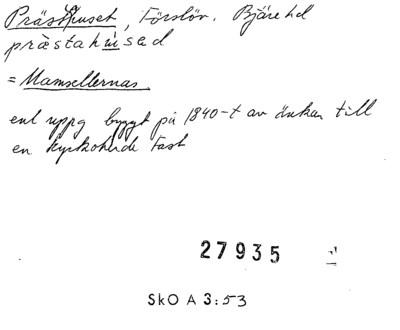 Prästhuset, Förslöv. Bjäre hd
præstahused
= Mamsellernas
enl uppg byggt på 1840-t av änkan till
en kyrkoherde Fast
27935
SkO A 3:53